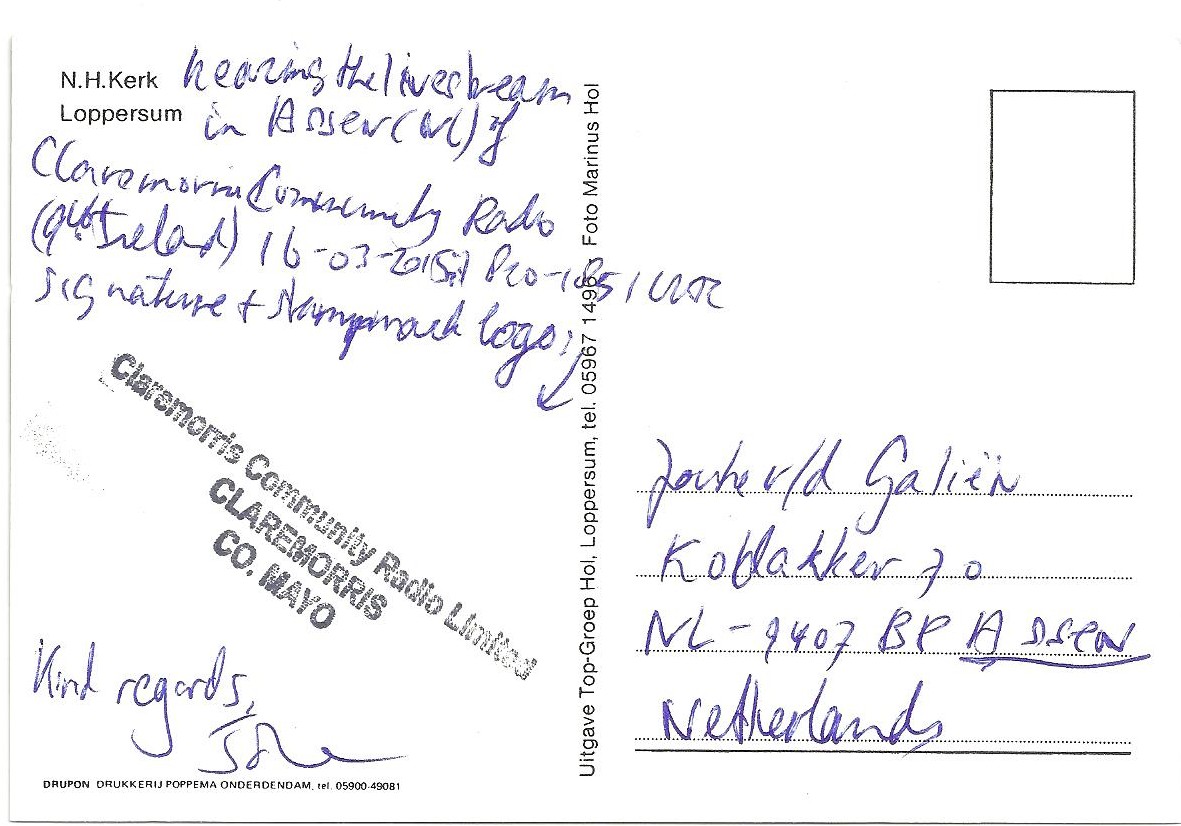 N.H.Kerk
Loppersum
hearing the livestream
in Assen (NL) of
Claremorris Community Radio
Ireland) 16-03-2015
signature + logo:
Claremorris Community Radio Limited
CLAREMORRIS
CO. MAYO
Kind regards,
DRUPON DRUKKERIJ POPPEMA ONDERDENDAM, tel. 05900-49081
Uitgave Top-Groep Hol, Loppersum, tel. 05967 1496 Foto Marinus Hol
v/d Galiën
Koblakker 70
NL-9407 BP Assen
Netherlands